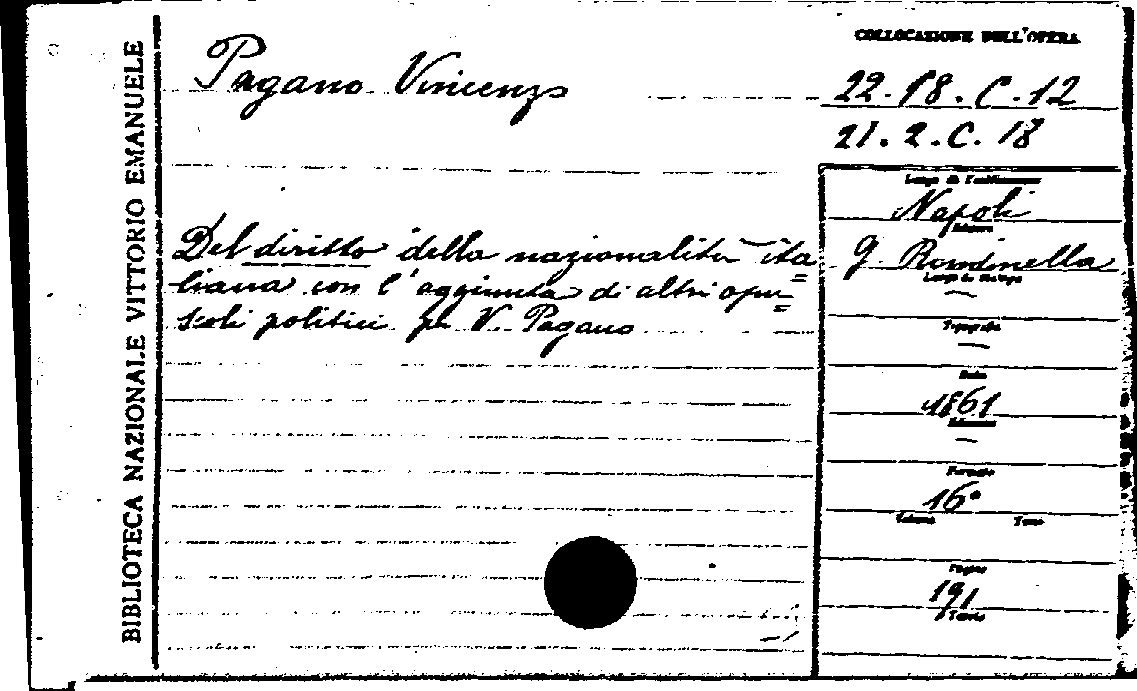 BIBLIOTECA NAZIONALE VITTORIO EMANUELE
Pagano Vincenzo
Del diritto della nazionalità ita=
liana con l'aggiunta di altri opu=
scoli politici per V. Pagano
COLLOCAZIONE DELL'OPERA
22.18.C.12
21.2.C.18
Napoli
Editore
G. Rondinella
Luogo di Stampa
—
Tipografia
—
Data
1861
—
Formato
16°
Volume Tomo
Pagine
191
Tavole